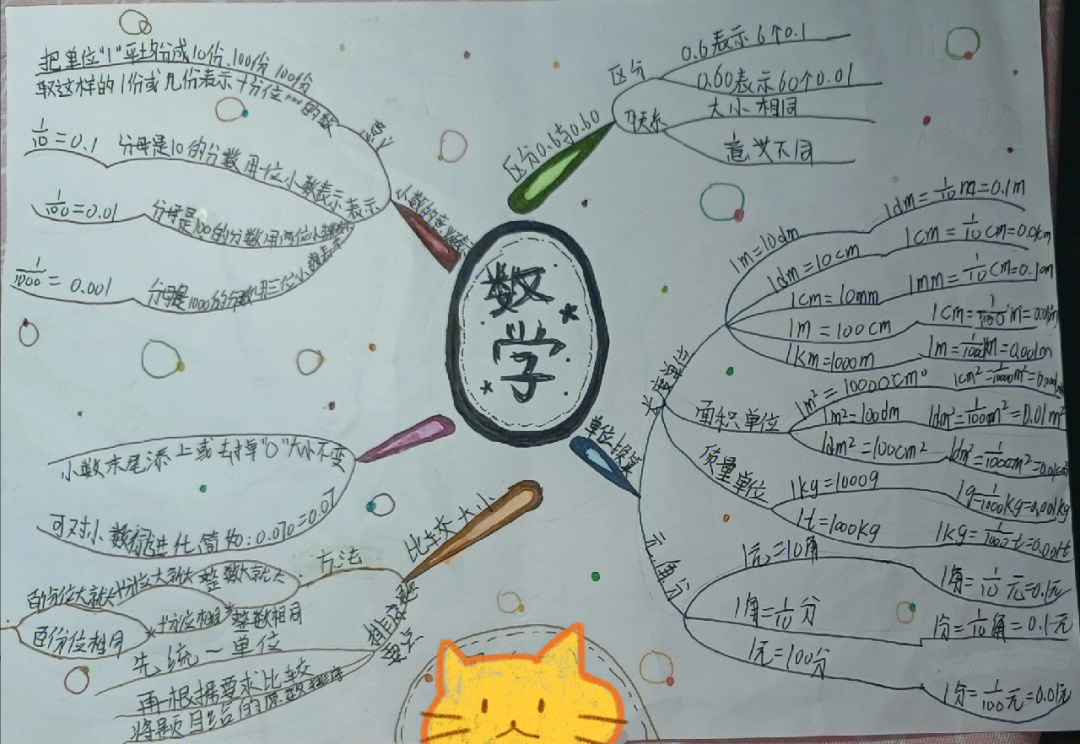 数学
小数的意义
意义
把单位"1"平均分成10份、100份、1000份
取这样的1份或几份表示十分位……的数
1/10=0.1 分母是10的分数用一位小数表示
1/100=0.01 分母是100的分数用两位小数表示
1/1000=0.001 分母是1000的分数用三位小数表示
区分0.6与0.60
区分
0.6表示6个0.1
0.60表示60个0.01
联系
大小相同
意义不同
小数末尾添上或去掉"0"大小不变
可对小数进化简如:0.070=0.07
比较大小
方法
整数大就大
十分位大就大
百分位大就大
整数相同
十分位相同
百分位相同
排序题
要点
先统一单位
再根据要求比较
将题目给的原数排序
单位换算
长度单位
1m=10dm 1dm=1/10m=0.1m
1dm=10cm 1cm=1/10cm=0.0
1cm=10mm 1mm=1/10cm=0.1cm
1m=100cm 1cm=1/100m=0.01m
1km=1000m 1m=1/1000
面积单位
1m²=10000cm²
1m²=100dm 1dm²=1/100m²=0.01m²
1dm²=100cm²
质量单位
1kg=1000g 1g=1/1000kg=0.001kg
1t=1000kg 1kg=1/1000t=0.001t
元、角、分
1元=10角 1角=1/10元=0.1元
1角=1/10分 1分=1/10角=0.1元
1元=100分 1分=1/100元=0.01元